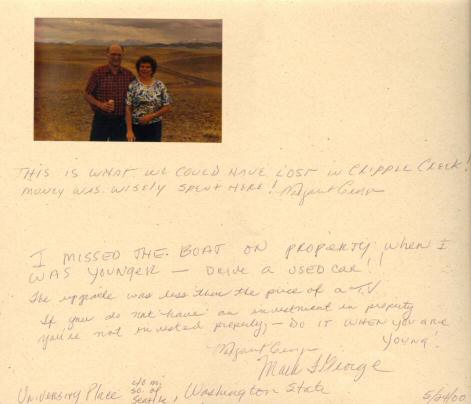 THIS IS WHAT WE COULD HAVE LOST IN CRIPPLE CREEK!
MONEY WAS WISELY SPENT HERE! Margaret George
I MISSED THE BOAT ON PROPERTY WHEN I
WAS YOUNGER — DRIVE A USED CAR!!
The upgrade was less then the price of a T.V.
If you do not have an investment in property
you're not invested property, — DO IT WHEN YOU ARE
YOUNG!
Margaret George
Mark F George
University Place 40 mi so. of Seattle, Washington State
5/24/00